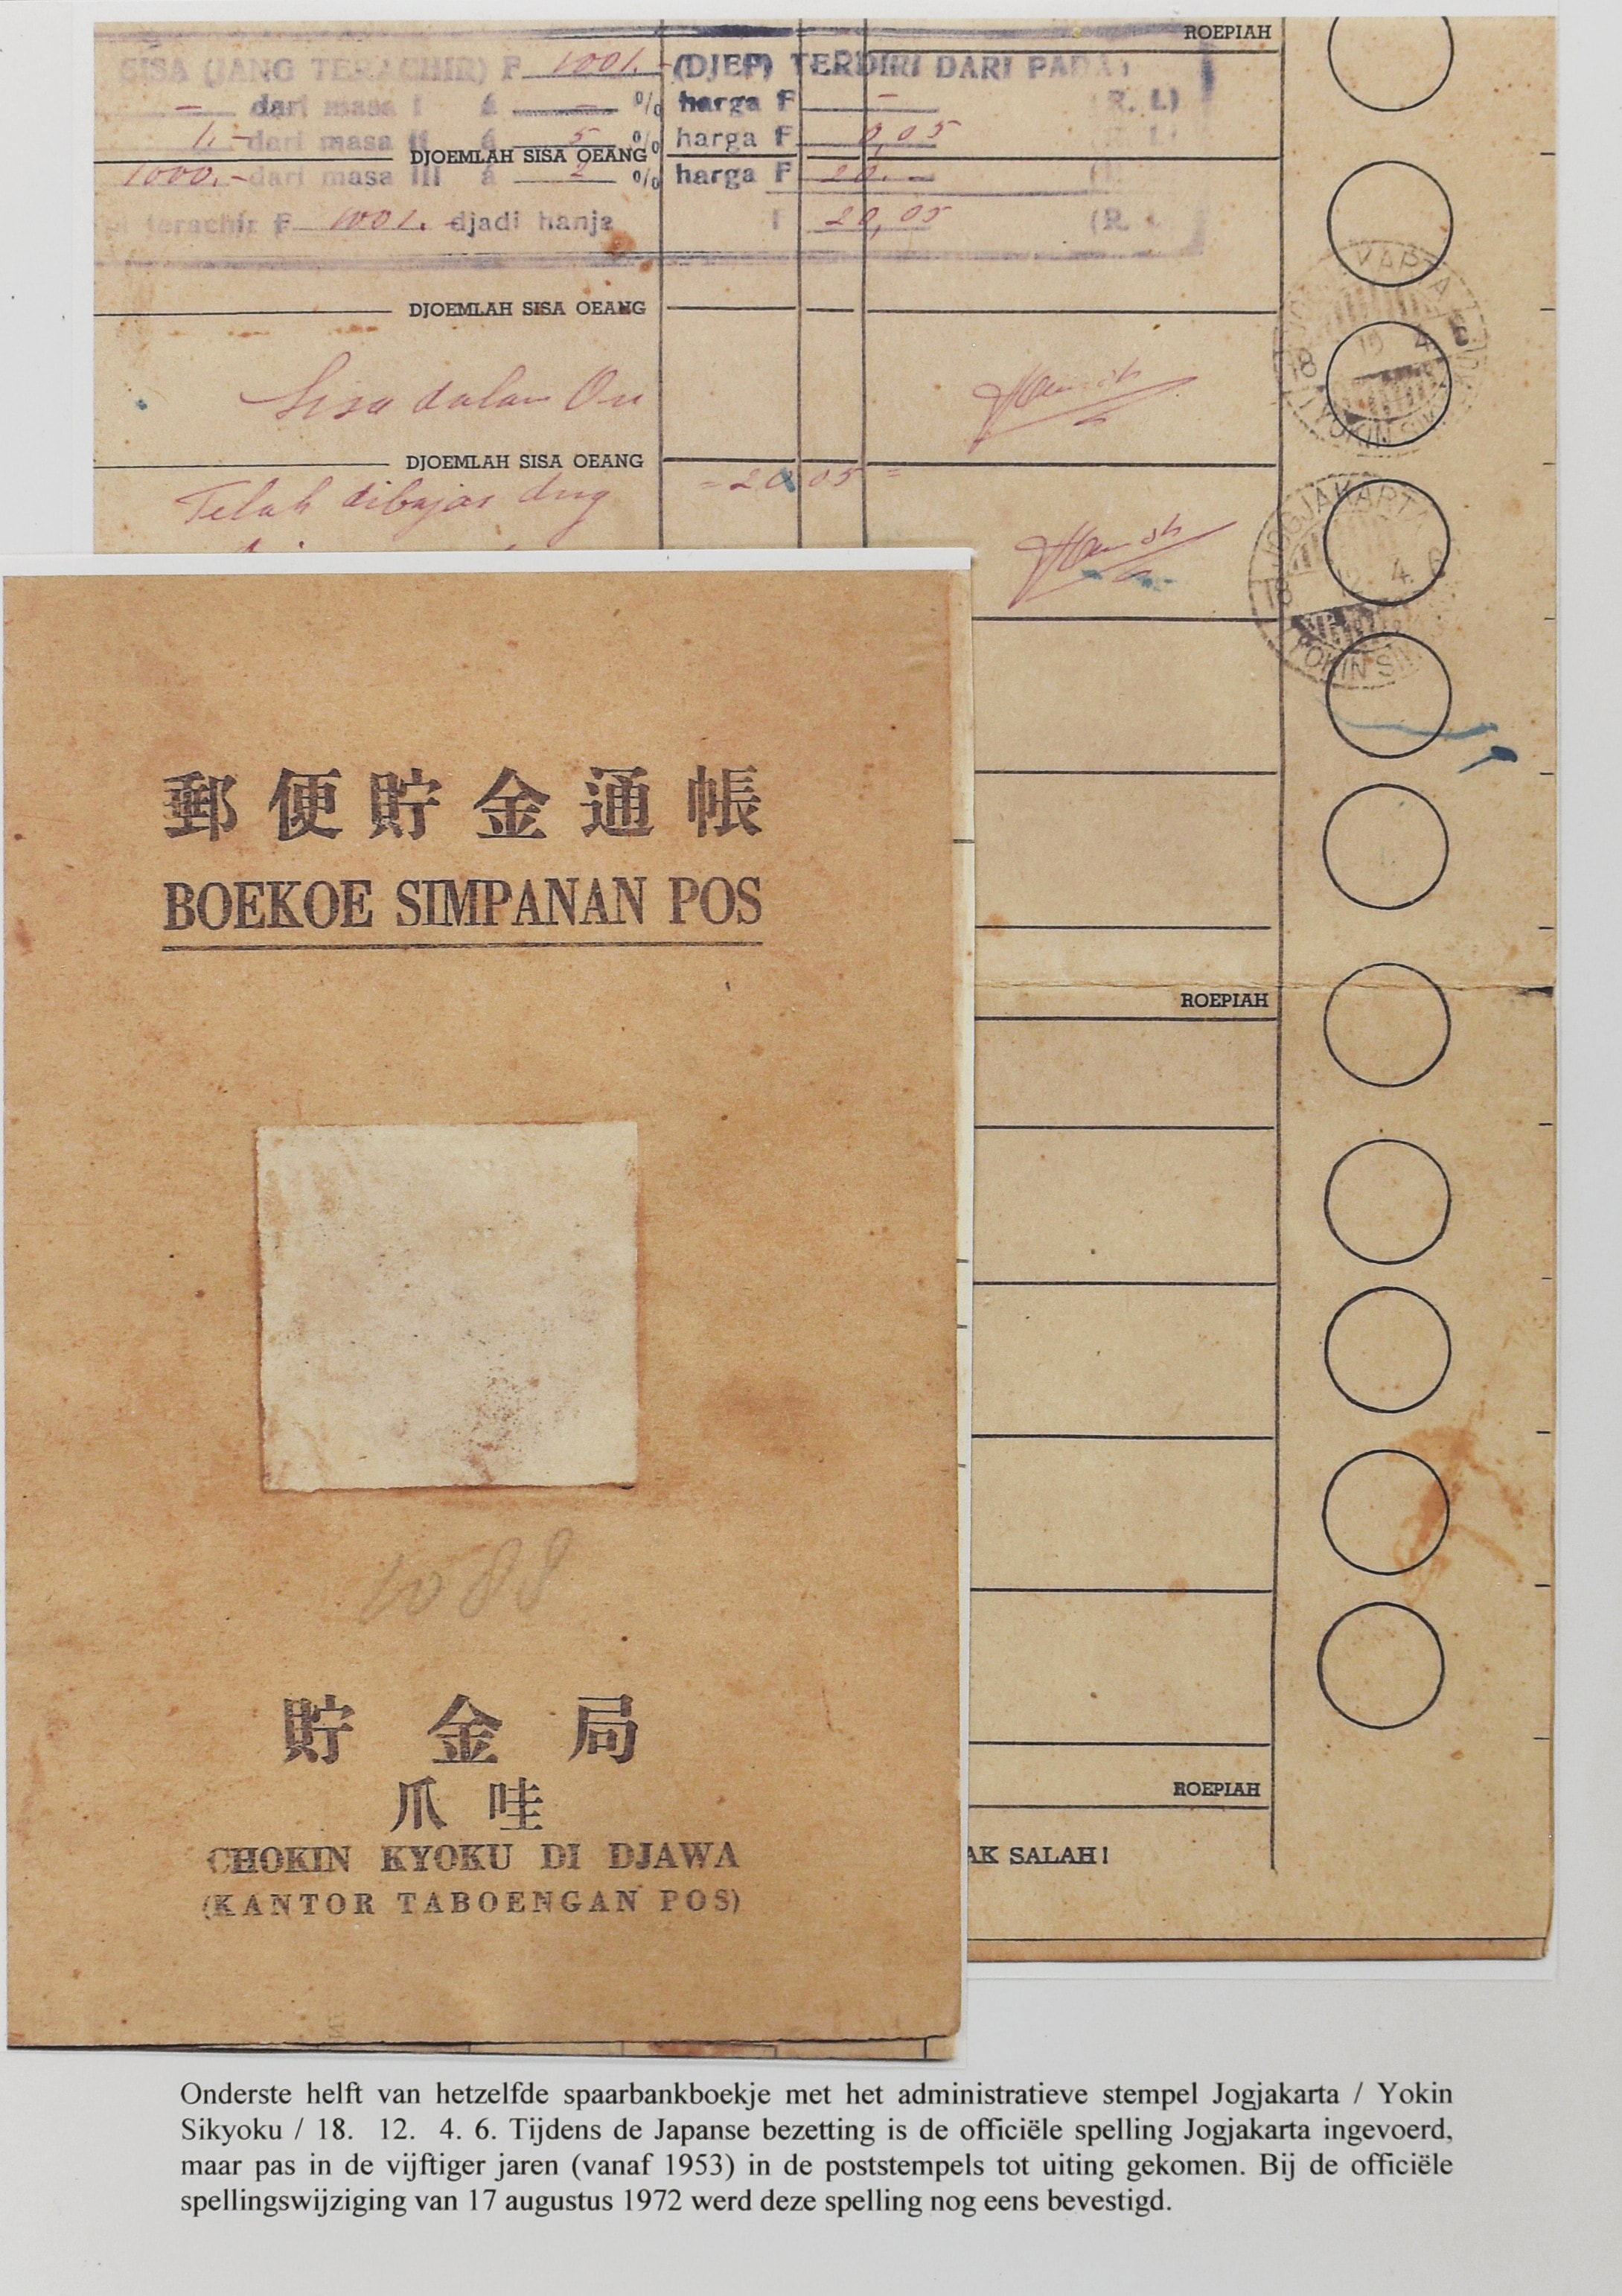 ROEPIAH
SISA (JANG TERACHIR) F 1001.- (DJEP) TERDIRI DARI PADA:
- dari masa I á - % harga F - (R. I.)
1,- dari masa II á 5 % harga F 0,05
DJOEMLAH SISA OEANG
1000.- dari masa III á 2 % harga F 20.-
terachir F 1001. djadi hanja F 20,05 (R.
DJOEMLAH SISA OEANG
Sisa dalam
DJOEMLAH SISA OEANG
= 20 05 =
Telah dibajar dng
JOGJAKARTA
18 12 4. 6
YOKIN SIK
JOGJAKARTA
18 4. 6
YOKIN SI
郵便貯金通帳
BOEKOE SIMPANAN POS
ROEPIAH
1088
貯金局
爪哇
CHOKIN KYOKU DI DJAWA
(KANTOR TABOENGAN POS)
ROEPIAH
AK SALAH!
Onderste helft van hetzelfde spaarbankboekje met het administratieve stempel Jogjakarta / Yokin
Sikyoku / 18. 12. 4. 6. Tijdens de Japanse bezetting is de officiële spelling Jogjakarta ingevoerd,
maar pas in de vijftiger jaren (vanaf 1953) in de poststempels tot uiting gekomen. Bij de officiële
spellingswijziging van 17 augustus 1972 werd deze spelling nog eens bevestigd.